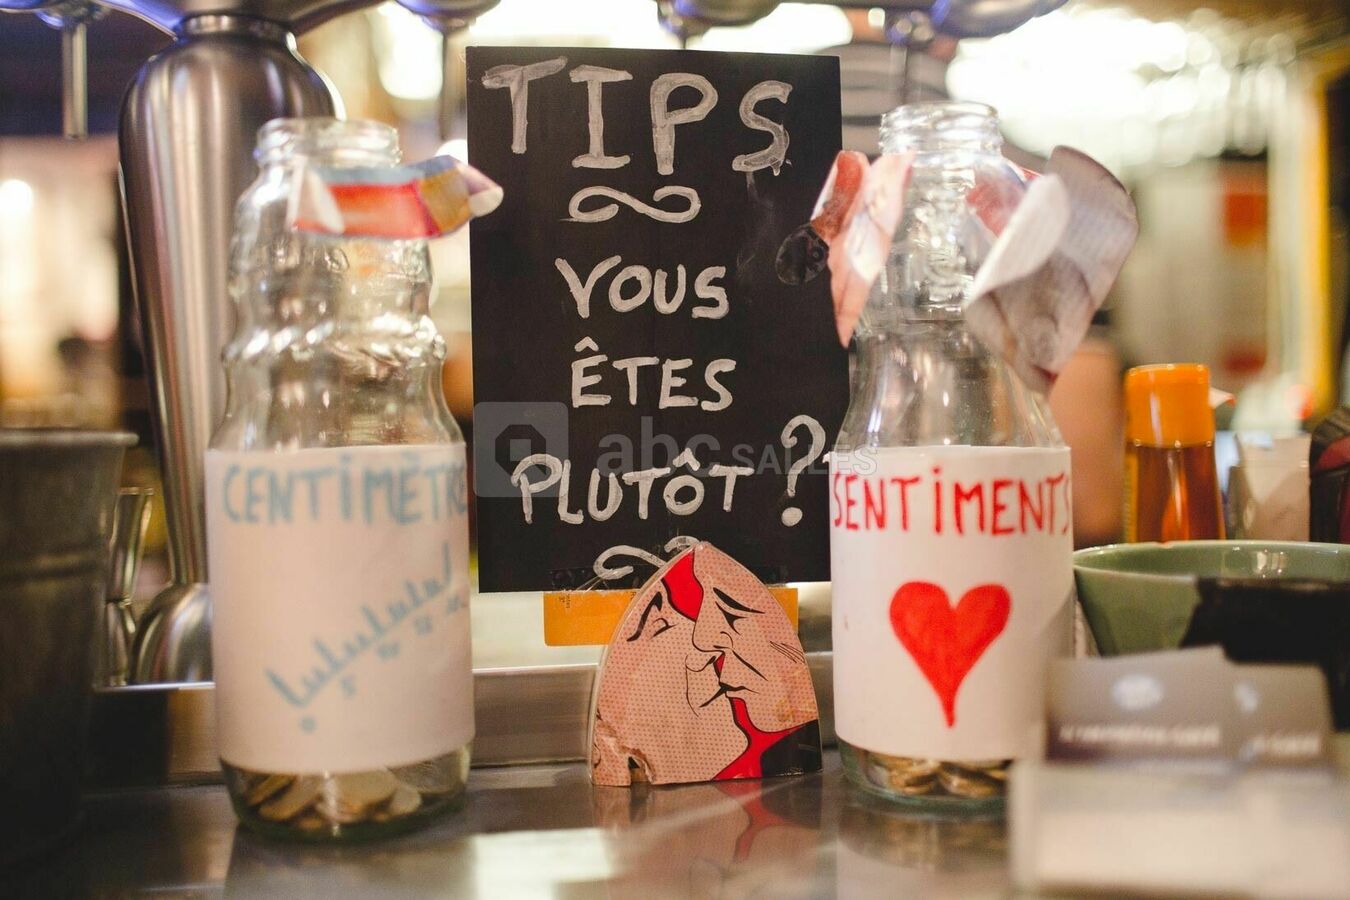 TIPS
VOUS
ÊTES
PLUTÔT ?
CENTIMÈTR
SENTIMENTS
abc SALLES